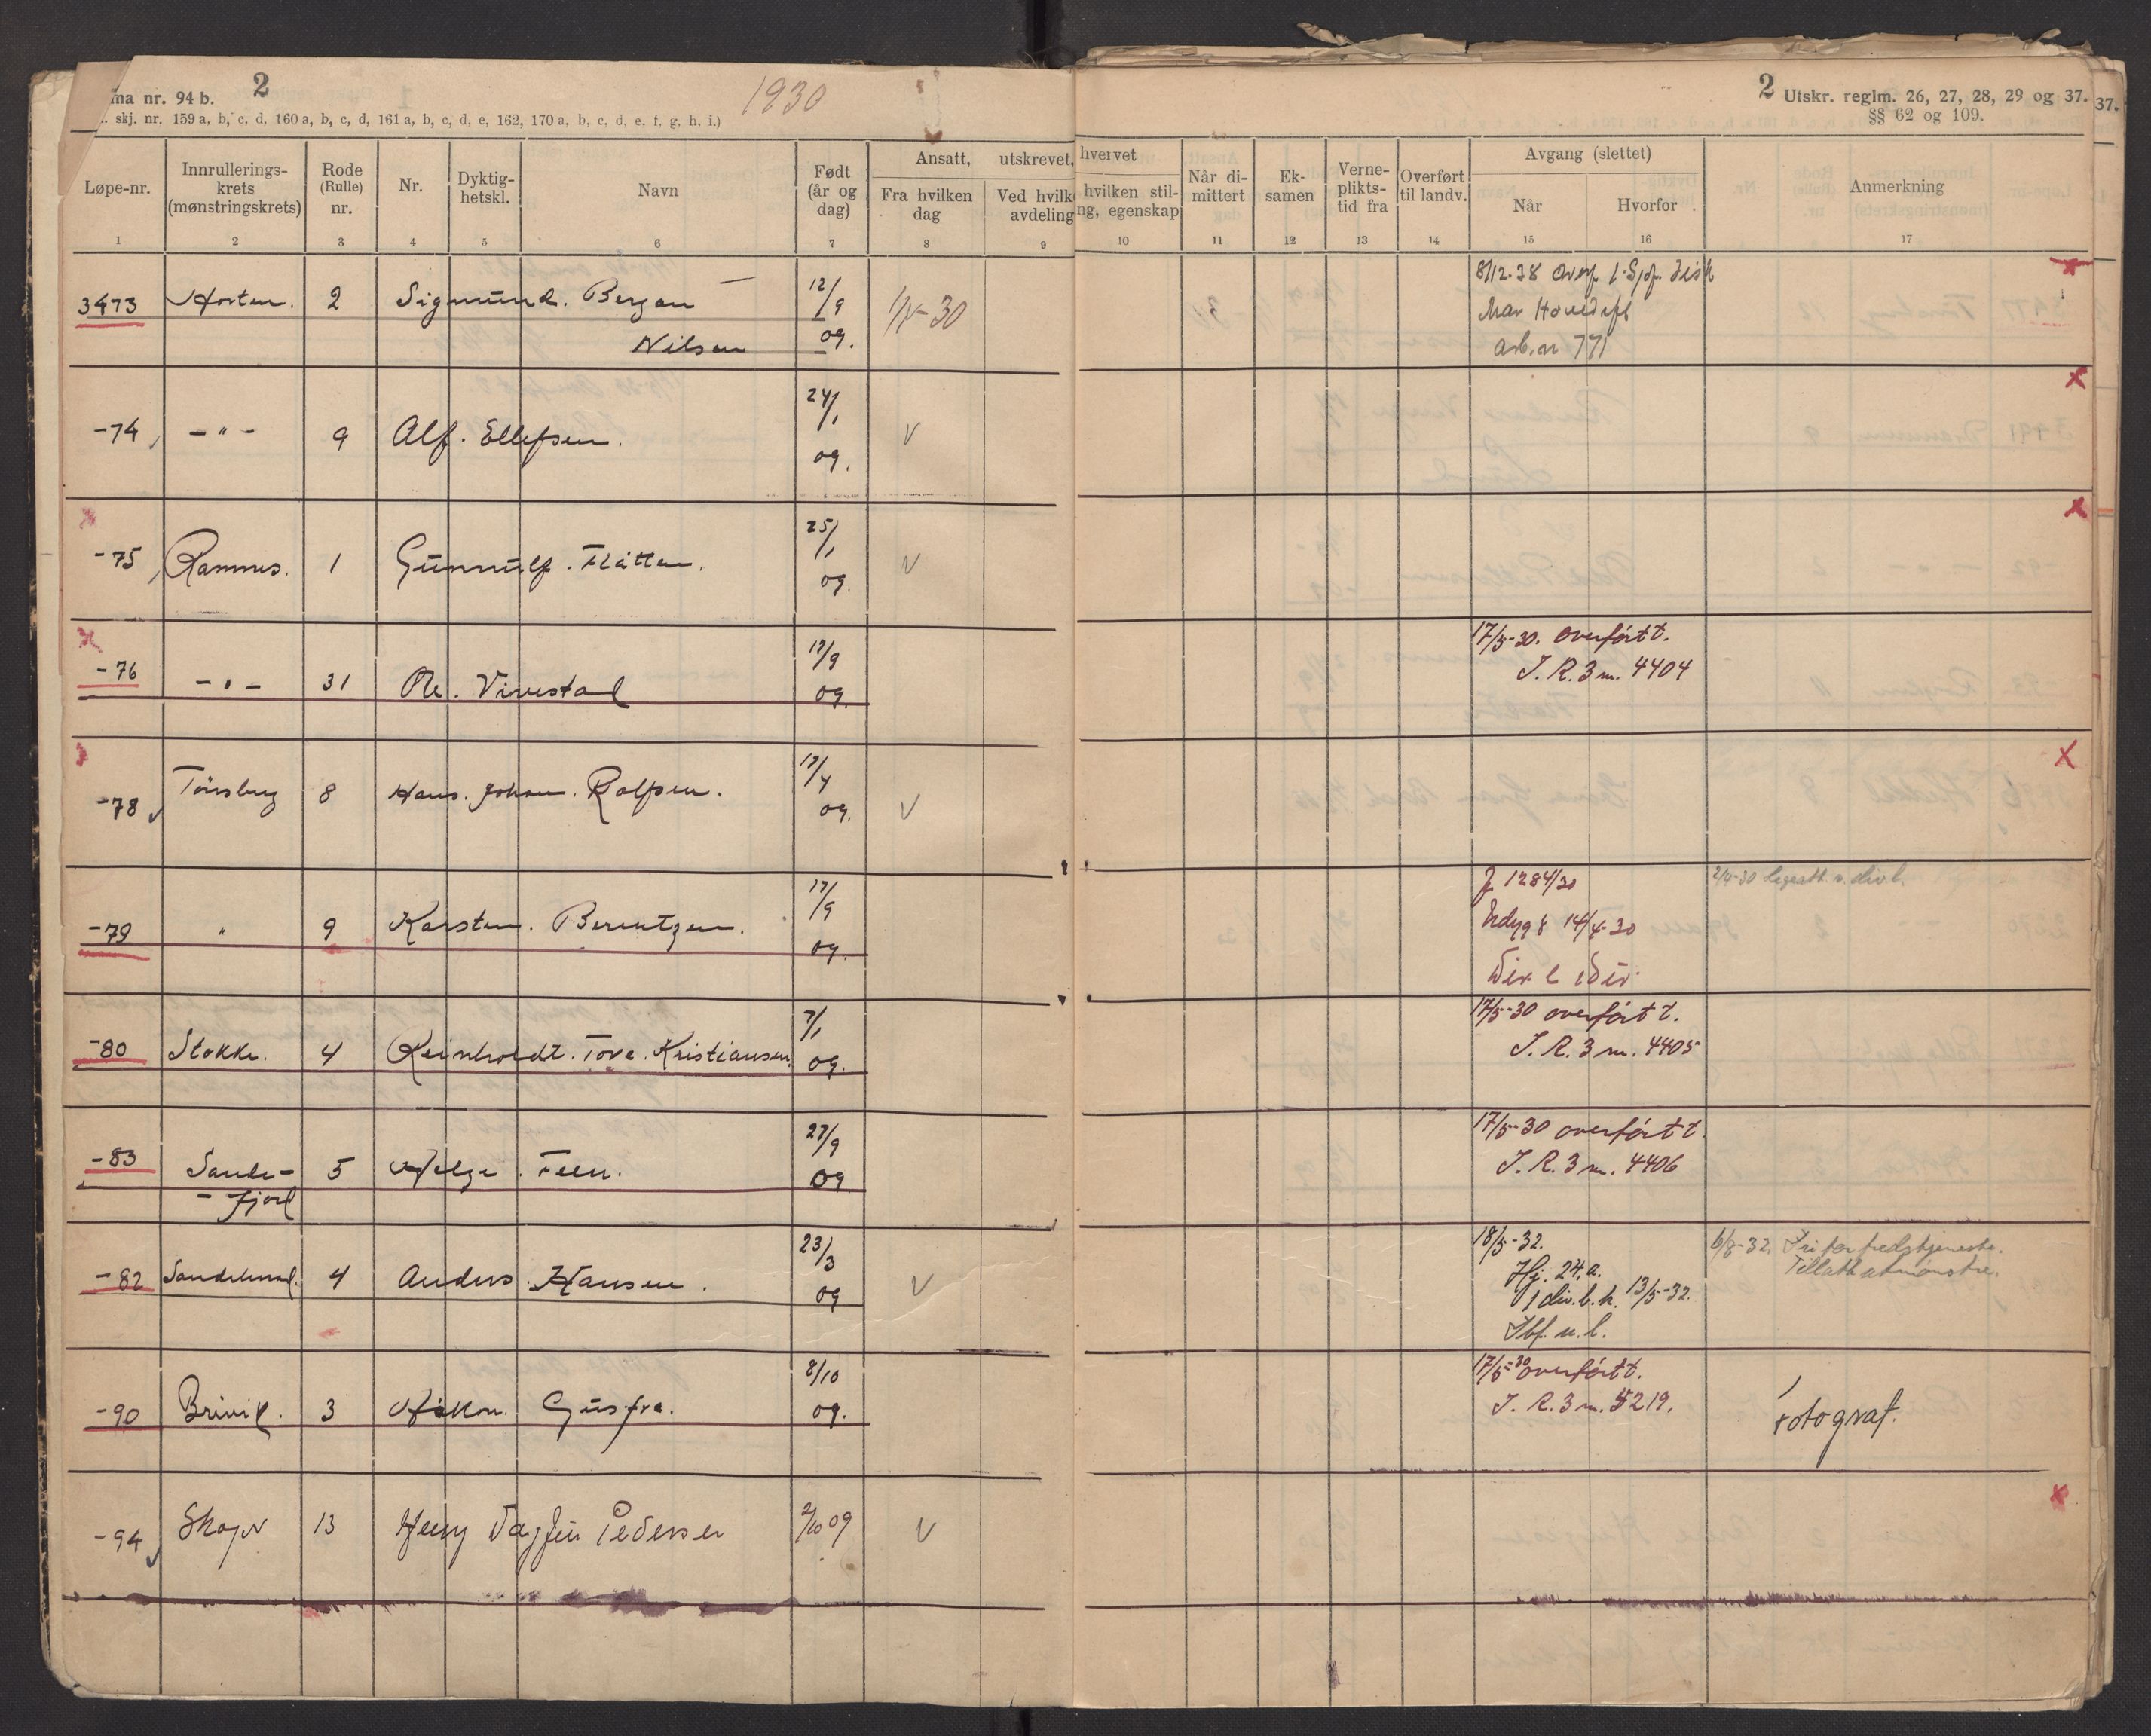 ma nr. 94 b. 2 1930
skj. nr. 159 a, b, c, d, 160 a, b, c, d, 161 a, b, c, d, e, 162, 170 a, b, c, d, e, f, g, h, i.)
2 Utskr. reglm. 26, 27, 28, 29 og 37.
37.
§§ 62 og 109.
Løpe-nr. Innrullerings-krets (mønstringskrets) Rode (Rulle) nr. Nr. Dyktig-hetskl. Navn Født (år og dag) Ansatt, utskrevet, hvervet
Fra hvilken dag Ved hvilk avdeling hvilken stil-ng, egenskap Når di-mittert Ek-samen Verne-plikts-tid fra Overført til landv. Avgang (slettet) Når Hvorfor Anmerkning
1 2 3 4 5 6 7 8 9 10 11 12 13 14 15 16 17
3473 Horten. 2 Sigmund. Bergan 12/9 30 8/12-38 Overf.
Nilsen 09. Mar Hovedefl
771
-74 - " - 9 Alf. Ellefsen. 24/1 09. V
-75 Ramnes. 1 Gunnulf. Flåtten. 25/1 09. V
-76 - " - 31 Ole. Vivestad 17/9 09. 17/5-30. overført t.
I. R. 3 m. 4404
-78 Tönsberg 8 Hans. Johan. Rolfsen. 17/4 09. V
-79 " 9 Karsten. Berentzen. 17/9 09. J 1284/30 2/4-30
14/4-30
-80 Stokke. 4 Reinholdt. Tove. Kristiansen. 7/1 09. 17/5-30 overført t.
I. R. 3 m. 4405
-83 Sande- 5 Helge. Feen. 27/9 09 17/5-30 overført t.
-fjord I. R. 3 m. 4406
-82 Sandeherred. 4 Anders. Hansen. 23/3 09 V 18/5-32. 6/8-32. Fri for fredstjeneste.
Hj. 24. a. Tillatt at mønstre.
1 div. b. k. 13/5-32.
-90 Brevik. 3 Håkon. 8/10 09. 17/5-30 overført t.
I. R. 3 m. 5219. Fotograf.
-94 13 Pedersen 2/10 09 V